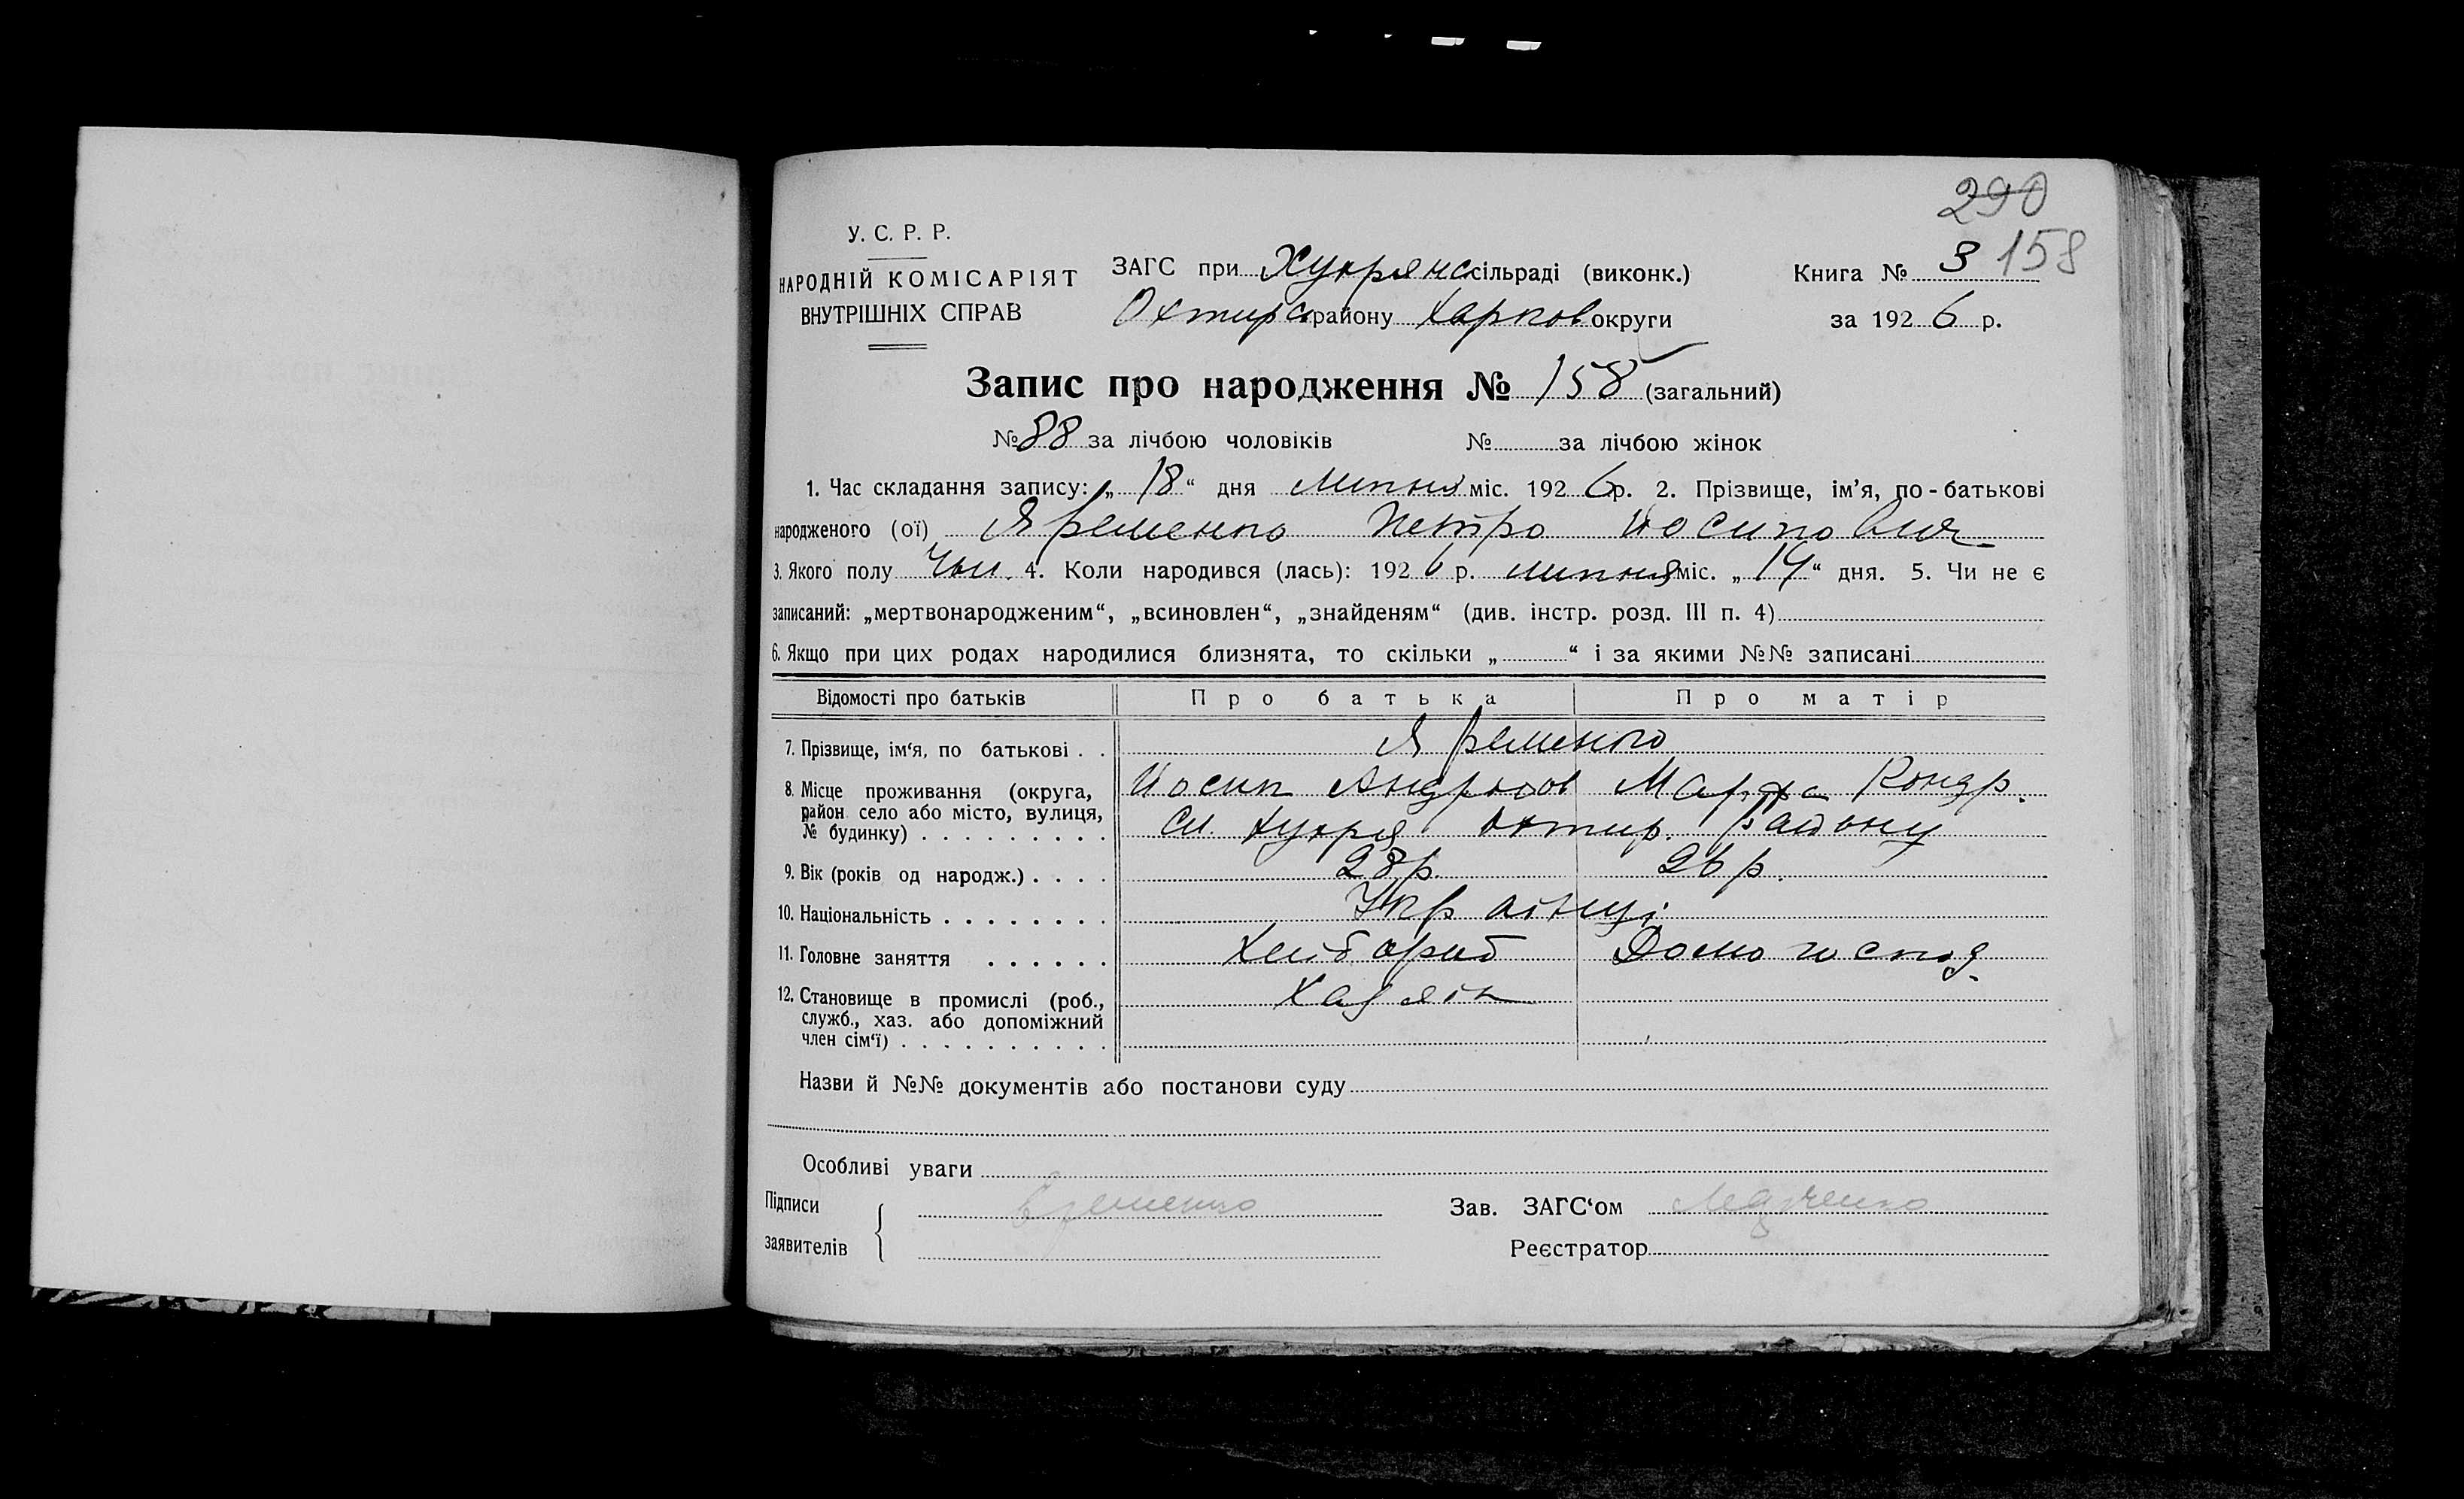 290
158
У. С. Р. Р.
НАРОДНІЙ КОМІСАРІЯТ
ВНУТРІШНІХ СПРАВ
ЗАГС при Хухрянс сільраді (виконк.)
Охтирс району Харков округи
Книга № 3
за 1926 р.
Запис про народження № 158 (загальний)
№ 88 за лічбою чоловіків № за лічбою жінок
1. Час складання запису: „ 18 “ дня Липня міс. 1926 р. 2. Прізвище, ім'я, по-батькові
народженого (ої) Яременко Петро Йосипович
3. Якого полу Чол. 4. Коли народився (лась): 1926 р. липня міс. „ 14 “ дня. 5. Чи не є
записаний: „мертвонародженим“, „всиновлен“, „знайденям“ (див. інстр. розд. III п. 4)
6. Якщо при цих родах народилися близнята, то скільки „ “ і за якими №№ записані
Відомості про батьків Про батька Про матір
7. Прізвище, ім‘я, по батькові . . Яременко
Йосип Андрієв Марфа Кондр.
8. Місце проживання (округа,
район село або місто, вулиця,
№ будинку) . . . . . . . . . сл. Хухря Охтир. Району
9. Вік (років од народж.) . . . . 28 р. 26 р.
10. Національність . . . . . . . . Українці
11. Головне заняття . . . . . . Хлібороб Домогоспод.
12. Становище в промислі (роб.,
служб., хаз. або допоміжний
член сім‘ї) . . . . . . . . . . Хазяїн
Назви й №№ документів або постанови суду
Особливі уваги
Підписи
заявителів
Яременко
Зав. ЗАГС‘ом
Реєстратор